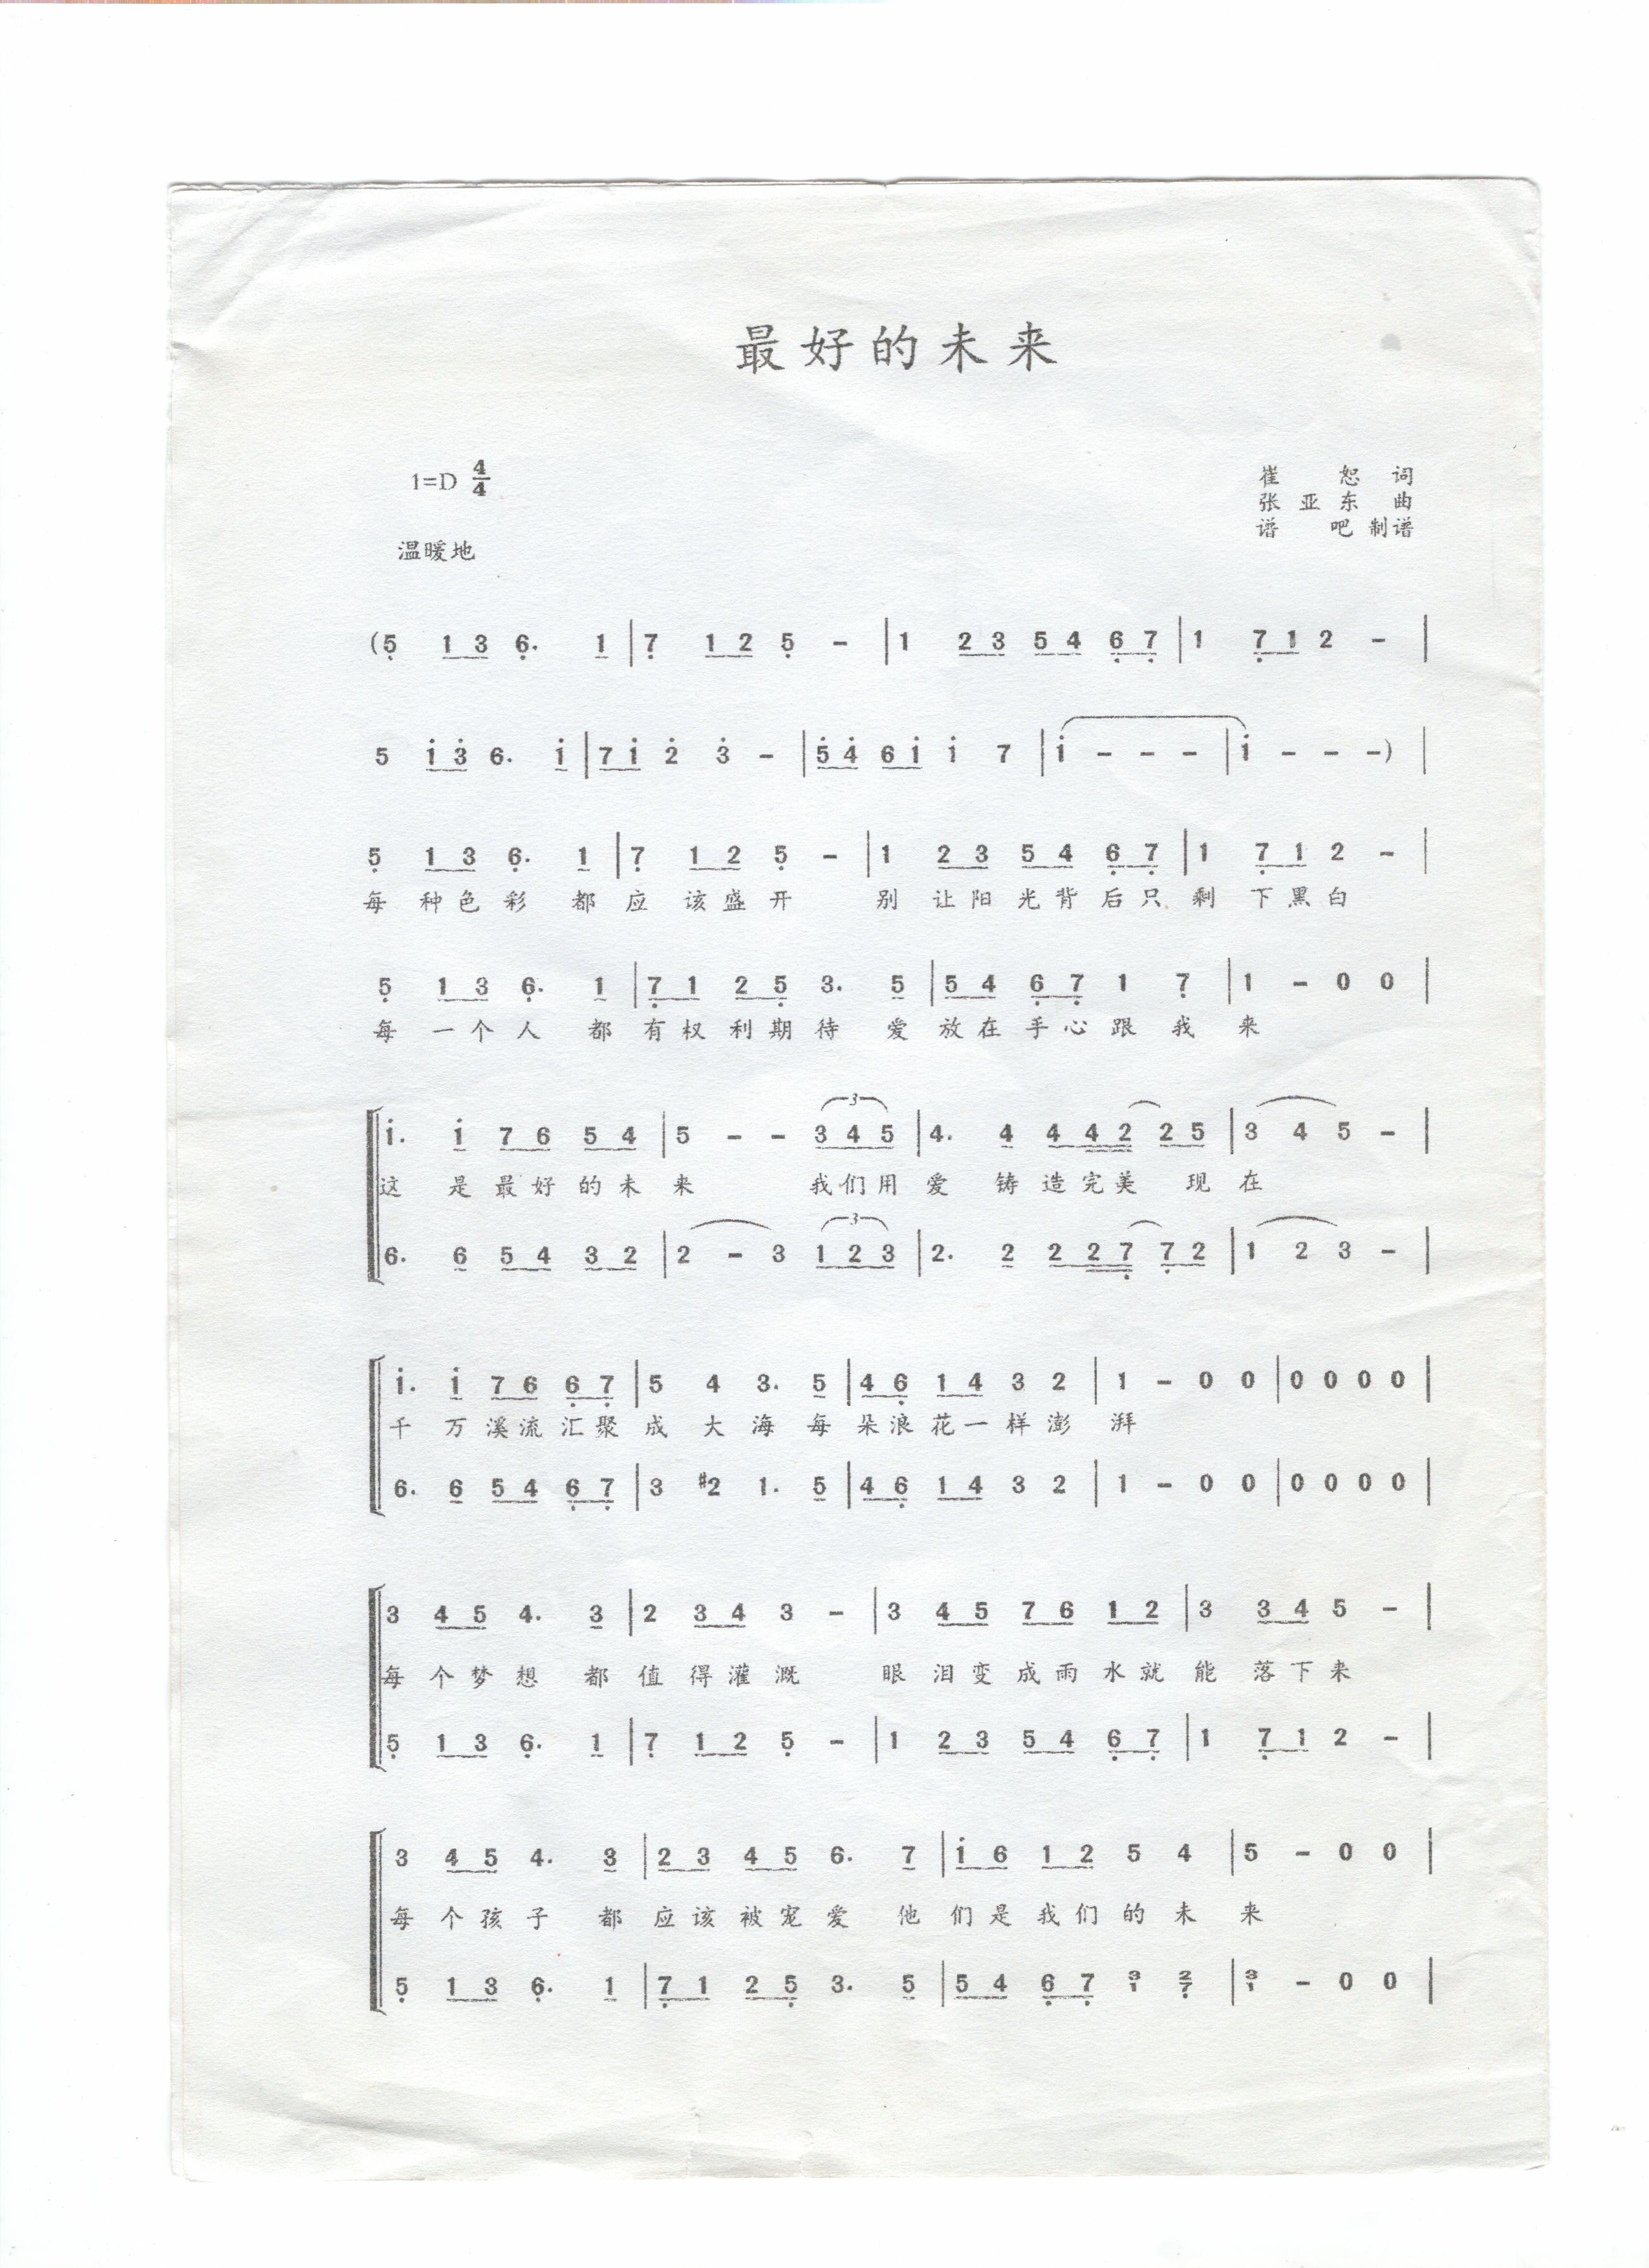 最好的未来
1=D 4/4
崔 恕 词
张亚东 曲
谱 吧 制谱
温暖地
(5̣ 1 3 6̣. 1 | 7̣ 1 2 5̣ - | 1 2 3 5 4 6̣ 7̣ | 1 7̣ 1 2 - |
5 1̇ 3̇ 6. 1̇ | 7 1̇ 2̇ 3̇ - | 5̇ 4̇ 6 1̇ 1̇ 7 | 1̇ - - - | 1̇ - - -) |
5̣ 1 3 6̣. 1 | 7̣ 1 2 5̣ - | 1 2 3 5 4 6̣ 7̣ | 1 7̣ 1 2 - |
每 种色彩 都 应 该盛开 别 让阳光背后只 剩 下黑白
5̣ 1 3 6̣. 1 | 7̣ 1 2 5̣ 3. 5 | 5 4 6̣ 7̣ 1 7̣ | 1 - 0 0 |
每 一个人 都 有权利期待 爱 放在手心跟 我 来
1̇. 1̇ 7 6 5 4 | 5 - - 3 4 5 | 4. 4 4 4 2 2 5 | 3 4 5 - |
3
这 是最好的未 来 我们用 爱 铸造完美 现 在
3
6. 6 5 4 3 2 | 2 - 3 1 2 3 | 2. 2 2 2 7̣ 7̣ 2 | 1 2 3 - |
1̇. 1̇ 7 6 6̣ 7̣ | 5 4 3. 5 | 4 6̣ 1 4 3 2 | 1 - 0 0 | 0 0 0 0 |
千 万溪流汇聚 成 大海 每 朵浪花一样澎 湃
6. 6 5 4 6̣ 7̣ | 3 #2 1. 5 | 4 6̣ 1 4 3 2 | 1 - 0 0 | 0 0 0 0 |
3 4 5 4. 3 | 2 3 4 3 - | 3 4 5 7 6 1 2 | 3 3 4 5 - |
每 个梦想 都 值 得灌溉 眼 泪变成雨水就 能 落下来
5̣ 1 3 6̣. 1 | 7̣ 1 2 5̣ - | 1 2 3 5 4 6̣ 7̣ | 1 7̣ 1 2 - |
3 4 5 4. 3 | 2 3 4 5 6. 7 | 1̇ 6 1 2 5 4 | 5 - 0 0 |
每 个孩子 都 应该被宠爱 他 们是我们的 未 来
5̣ 1 3 6̣. 1 | 7̣ 1 2 5̣ 3. 5 | 5 4 6̣ 7̣ 3/1 2/7̣ | 3/1 - 0 0 |